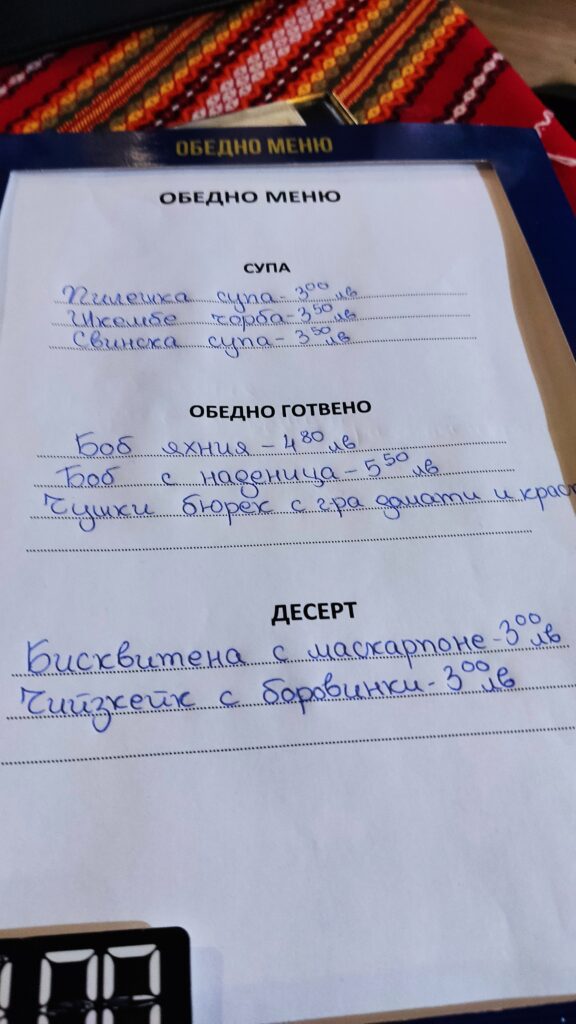 ОБЕДНО МЕНЮ
ОБЕДНО МЕНЮ
СУПА
Пилешка супа - 3⁰⁰ лв
Шкембе чорба - 3⁵⁰ лв
Свинска супа - 3⁵⁰ лв
ОБЕДНО ГОТВЕНО
Боб яхния - 4⁸⁰ лв
Боб с наденица - 5⁵⁰ лв
Чушки бюрек с гра домати и краст
ДЕСЕРТ
Бисквитена с маскарпоне - 3⁰⁰ лв
Чийзкейк с боровинки - 3⁰⁰ лв
00